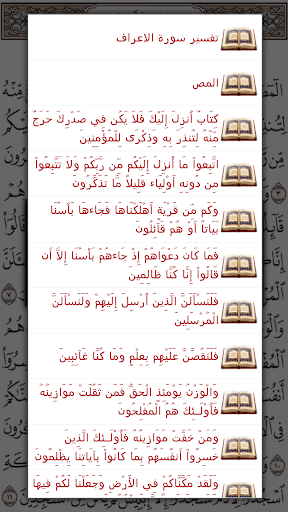 تفسير سورة الاعراف
المص
كِتَابٌ أُنزِلَ إِلَيْكَ فَلاَ يَكُن فِي صَدْرِكَ حَرَجٌ
مِّنْهُ لِتُنذِرَ بِهِ وَذِكْرَى لِلْمُؤْمِنِينَ
اتَّبِعُواْ مَا أُنزِلَ إِلَيْكُم مِّن رَّبِّكُمْ وَلاَ تَتَّبِعُواْ
مِن دُونِهِ أَوْلِيَاء قَلِيلاً مَّا تَذَكَّرُونَ
وَكَم مِّن قَرْيَةٍ أَهْلَكْنَاهَا فَجَاءهَا بَأْسُنَا
بَيَاتاً أَوْ هُمْ قَآئِلُونَ
فَمَا كَانَ دَعْوَاهُمْ إِذْ جَاءهُمْ بَأْسُنَا إِلاَّ أَن
قَالُواْ إِنَّا كُنَّا ظَالِمِينَ
فَلَنَسْأَلَنَّ الَّذِينَ أُرْسِلَ إِلَيْهِمْ وَلَنَسْأَلَنَّ
الْمُرْسَلِينَ
فَلَنَقُصَّنَّ عَلَيْهِم بِعِلْمٍ وَمَا كُنَّا غَآئِبِينَ
وَالْوَزْنُ يَوْمَئِذٍ الْحَقُّ فَمَن ثَقُلَتْ مَوَازِينُهُ
فَأُوْلَـئِكَ هُمُ الْمُفْلِحُونَ
وَمَنْ خَفَّتْ مَوَازِينُهُ فَأُوْلَـئِكَ الَّذِينَ
خَسِرُواْ أَنفُسَهُم بِمَا كَانُواْ بِآيَاتِنَا يِظْلِمُونَ
وَلَقَدْ مَكَّنَّاكُمْ فِي الأَرْضِ وَجَعَلْنَا لَكُمْ فِيهَا